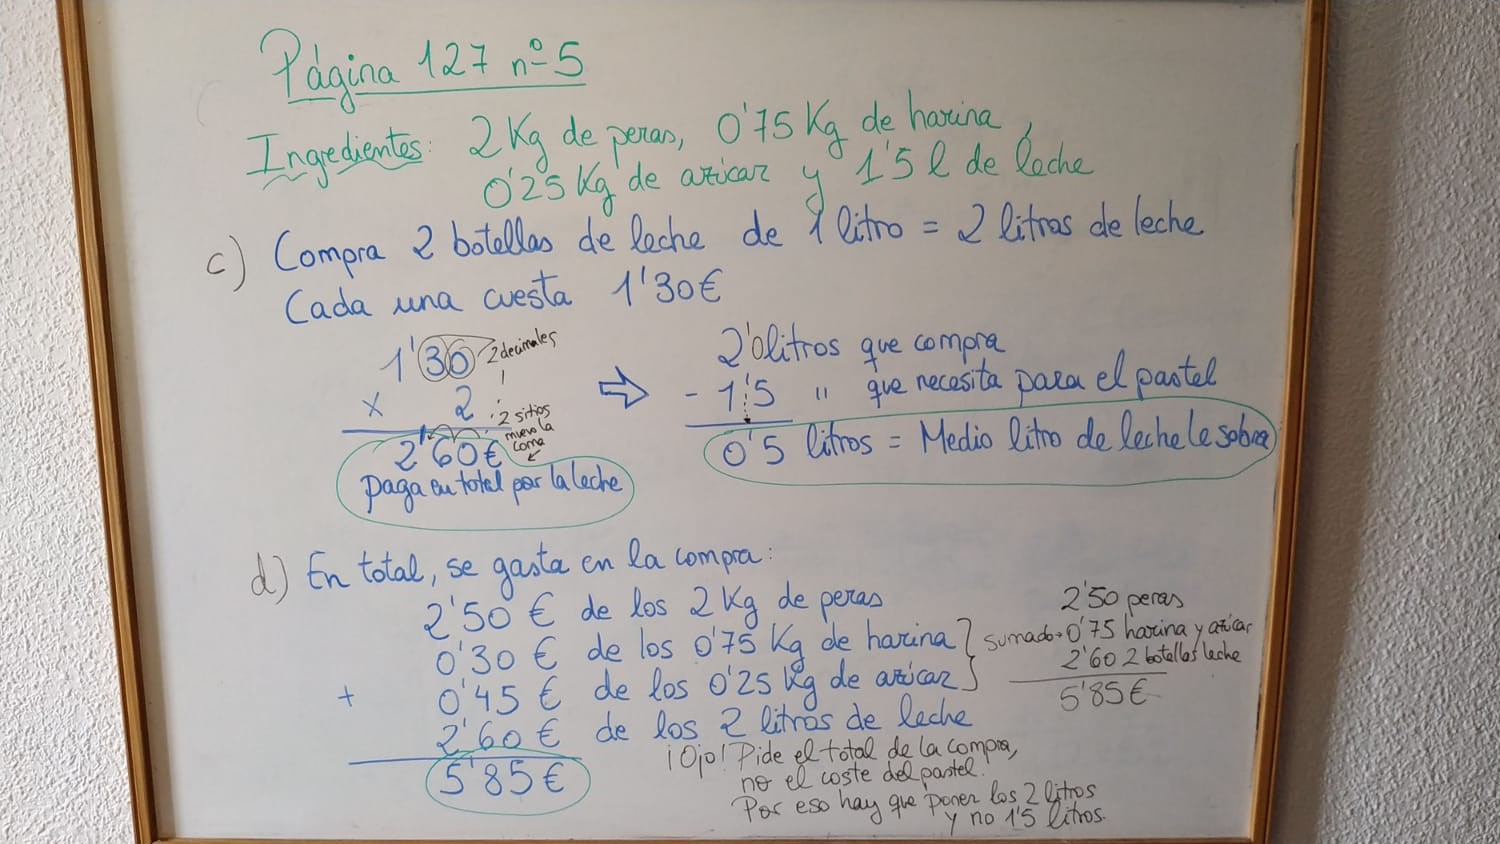 Página 127 nº 5
Ingredientes: 2 Kg de peras, 0'75 Kg de harina,
0'25 Kg de azúcar y 1'5 l de leche
c) Compra 2 botellas de leche de 1 litro = 2 litros de leche
Cada una cuesta 1'30 €
1'30 2 decimales
x 2
2 sitios
muevo la
coma
2'60 €
paga en total por la leche
⇨
2'0 litros que compra
- 1'5 " que necesita para el pastel
0'5 litros = Medio litro de leche le sobra
d) En total, se gasta en la compra:
2'50 € de los 2 Kg de peras
0'30 € de los 0'75 Kg de harina
+ 0'45 € de los 0'25 Kg de azúcar
2'60 € de los 2 litros de leche
5'85 €
2'50 peras
sumado → 0'75 harina y azúcar
2'60 2 botellas leche
5'85 €
¡Ojo! Pide el total de la compra,
no el coste del pastel.
Por eso hay que poner los 2 litros
y no 1'5 litros.